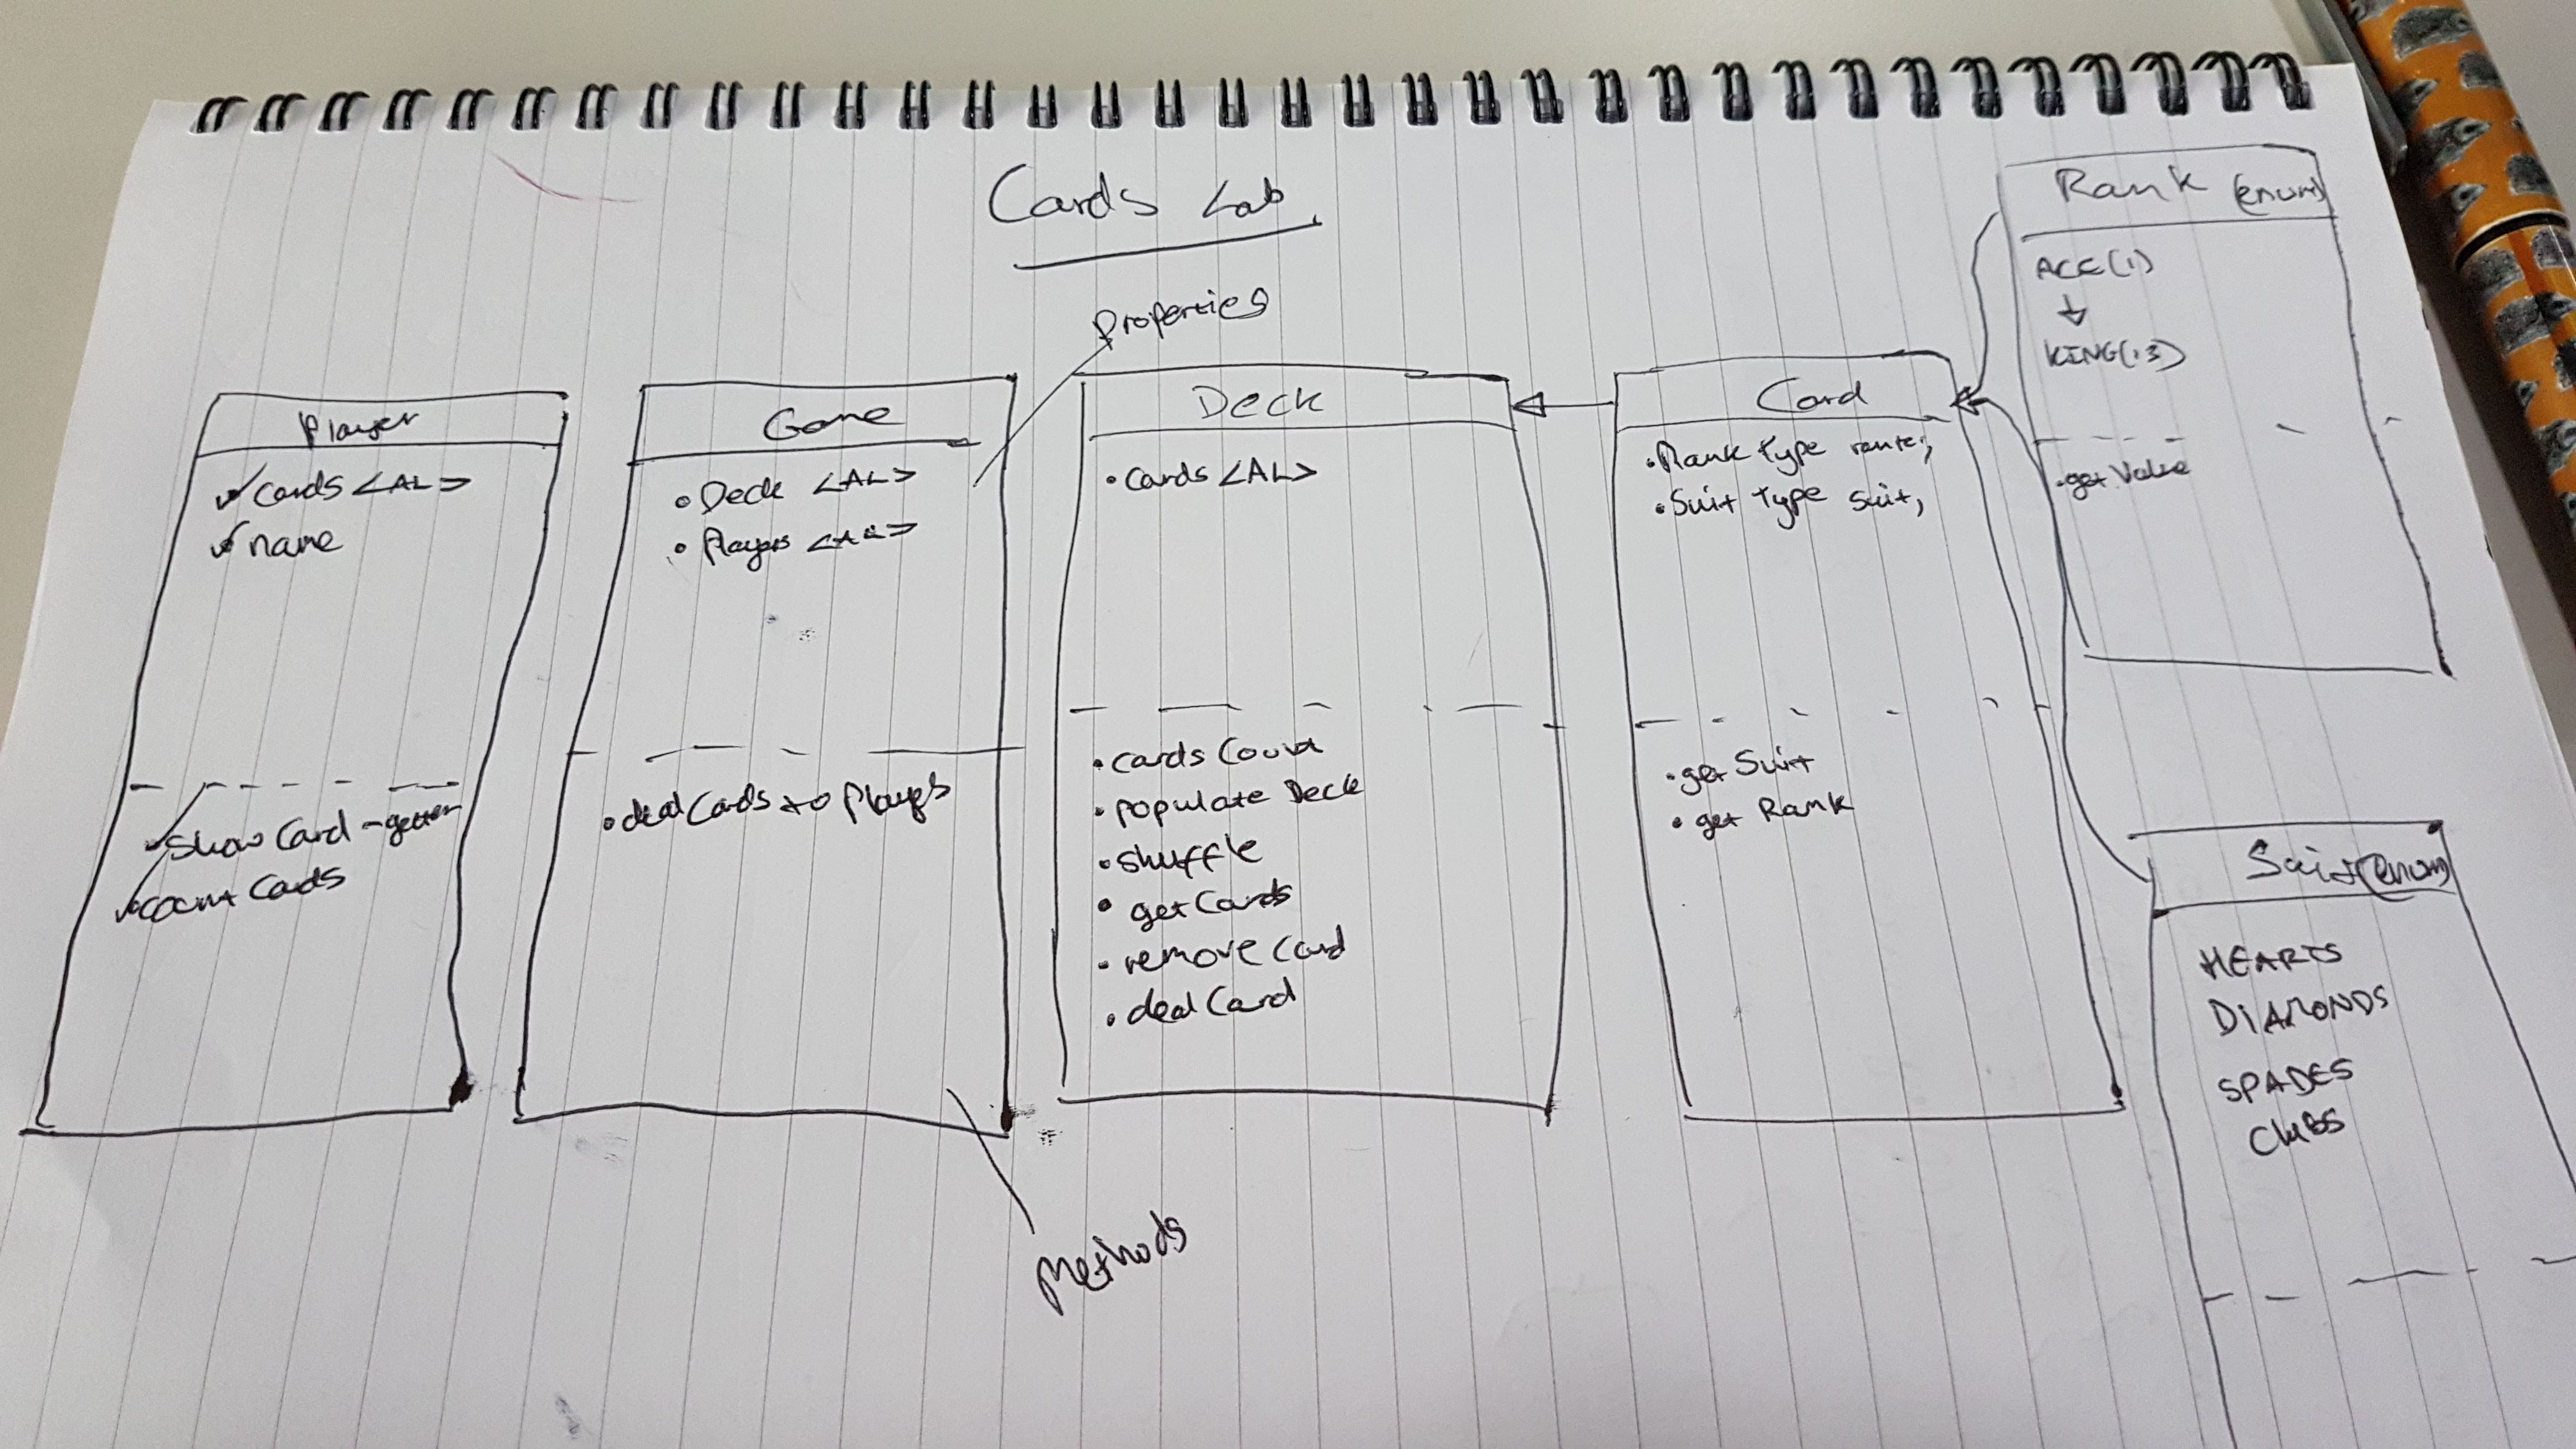 Cards Lab
Properties
Player
Cards <AL>
name
Show Card - getter
count Cards
Game
Deck <AL>
Players <AL>
deal Cards to Players
Methods
Deck
Cards <AL>
cards Count
populate Deck
shuffle
get Cards
remove Card
deal Card
Card
Rank Type rank;
Suit Type suit;
get Suit
get Rank
Rank (enum)
ACE(1)
↓
KING(13)
get Value
Suit (enum)
HEARTS
DIAMONDS
SPADES
CLUBS